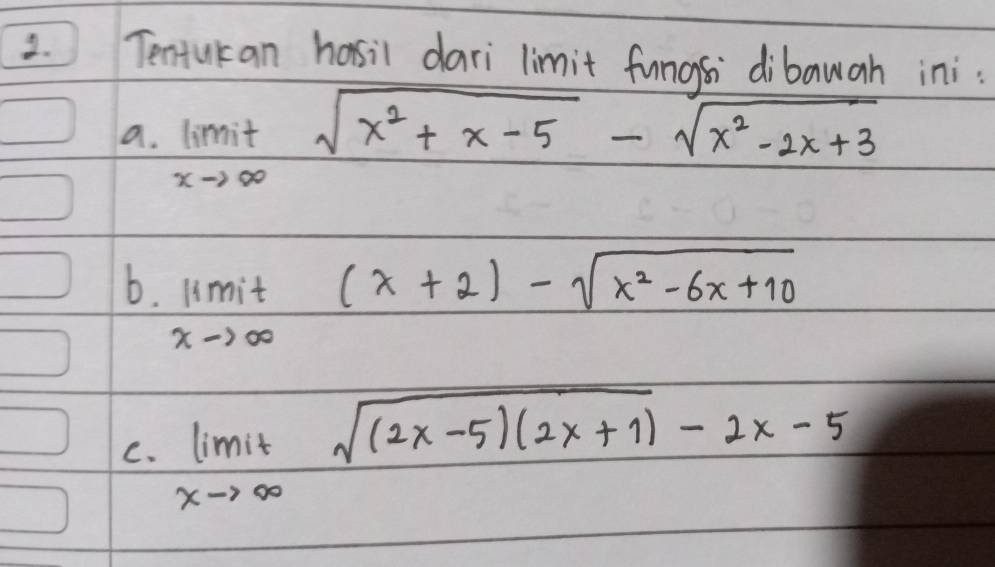 2. Tentukan hasil dari limit fungsi dibawah ini:
a. limit √(x² + x - 5) - √(x² - 2x + 3)
x → ∞
b. limit (x + 2) - √(x² - 6x + 10)
x → ∞
c. limit √((2x - 5)(2x + 1)) - 2x - 5
x → ∞